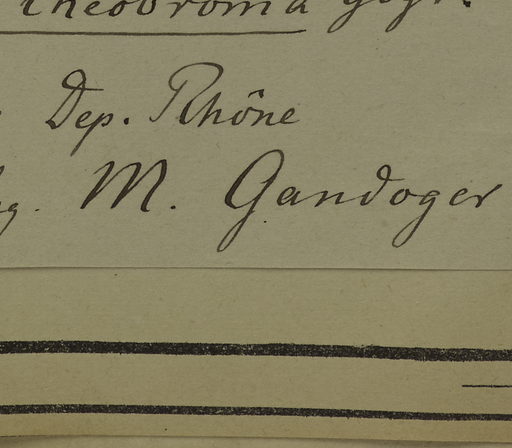 theobroma
Dep. Rhône
M. Gandoger